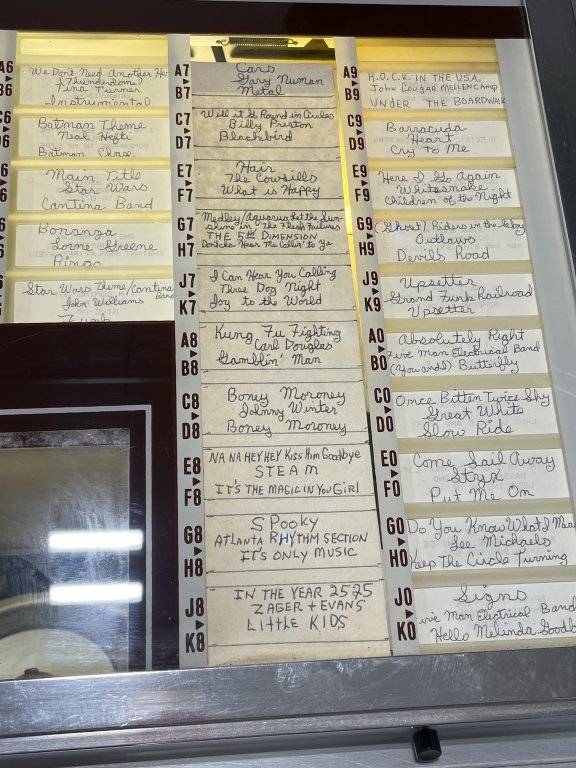 A6
B6
We Dont Need Another He
(Thunderdome)
Tina Turner
Instrumental
C6
D6
Batman Theme
Neal Hefti
Batman Chase
6
6
Main Title
Star Wars
Cantina Band
6
6
Bonanza
Lorne Greene
Ringo
6
Star Wars Theme/Cantina
Band
John Williams
A7
B7
Cars
Gary Numan
Metal
C7
D7
Will it G Round in Circles
Billy Preston
Blackbird
E7
F7
Hair
The Cowsills
What is Happy
G7
H7
Medley/Aquarius Let the Sun-
shine in / The Flesh Failures
THE 5th DIMENSION
Hear Me Callin' to Ya
J7
K7
I Can Hear You Calling
Three Dog Night
Joy to the World
A8
B8
Kung Fu Fighting
Carl Douglas
Gamblin' Man
C8
D8
Boney Moroney
Johnny Winter
Boney Moroney
E8
F8
NA NA HEY HEY Kiss Him Goodbye
STEAM
IT'S THE MAGIC IN YOU GIRL
G8
H8
SPooky
ATLANTA RHYTHM SECTION
IT'S ONLY MUSIC
J8
K8
IN THE YEAR 2525
ZAGER + EVANS
LITTLE KIDS
A9
B9
R.O.C.K. IN THE U.S.A.
John Cougar MELLENCAMP
UNDER THE BOARDWALK
C9
D9
Barracuda
Heart
Cry to Me
E9
F9
Here I Go Again
Whitesnake
Children of the Night
G9
H9
(Ghost) Riders in the Sky
Outlaws
Devil's Road
J9
K9
Upsetter
Grand Funk Railroad
Upsetter
A0
B0
Absolutely Right
Five Man Electrical Band
(You and I) Butterfly
C0
D0
Once Bitten Twice Shy
Great White
Slow Ride
E0
F0
Come Sail Away
Styx
Put Me On
G0
H0
Do You Know What I Mean
Lee Michaels
Keep The Circle Turning
J0
K0
Signs
ive Man Electrical Band
Hello Melinda Goodb